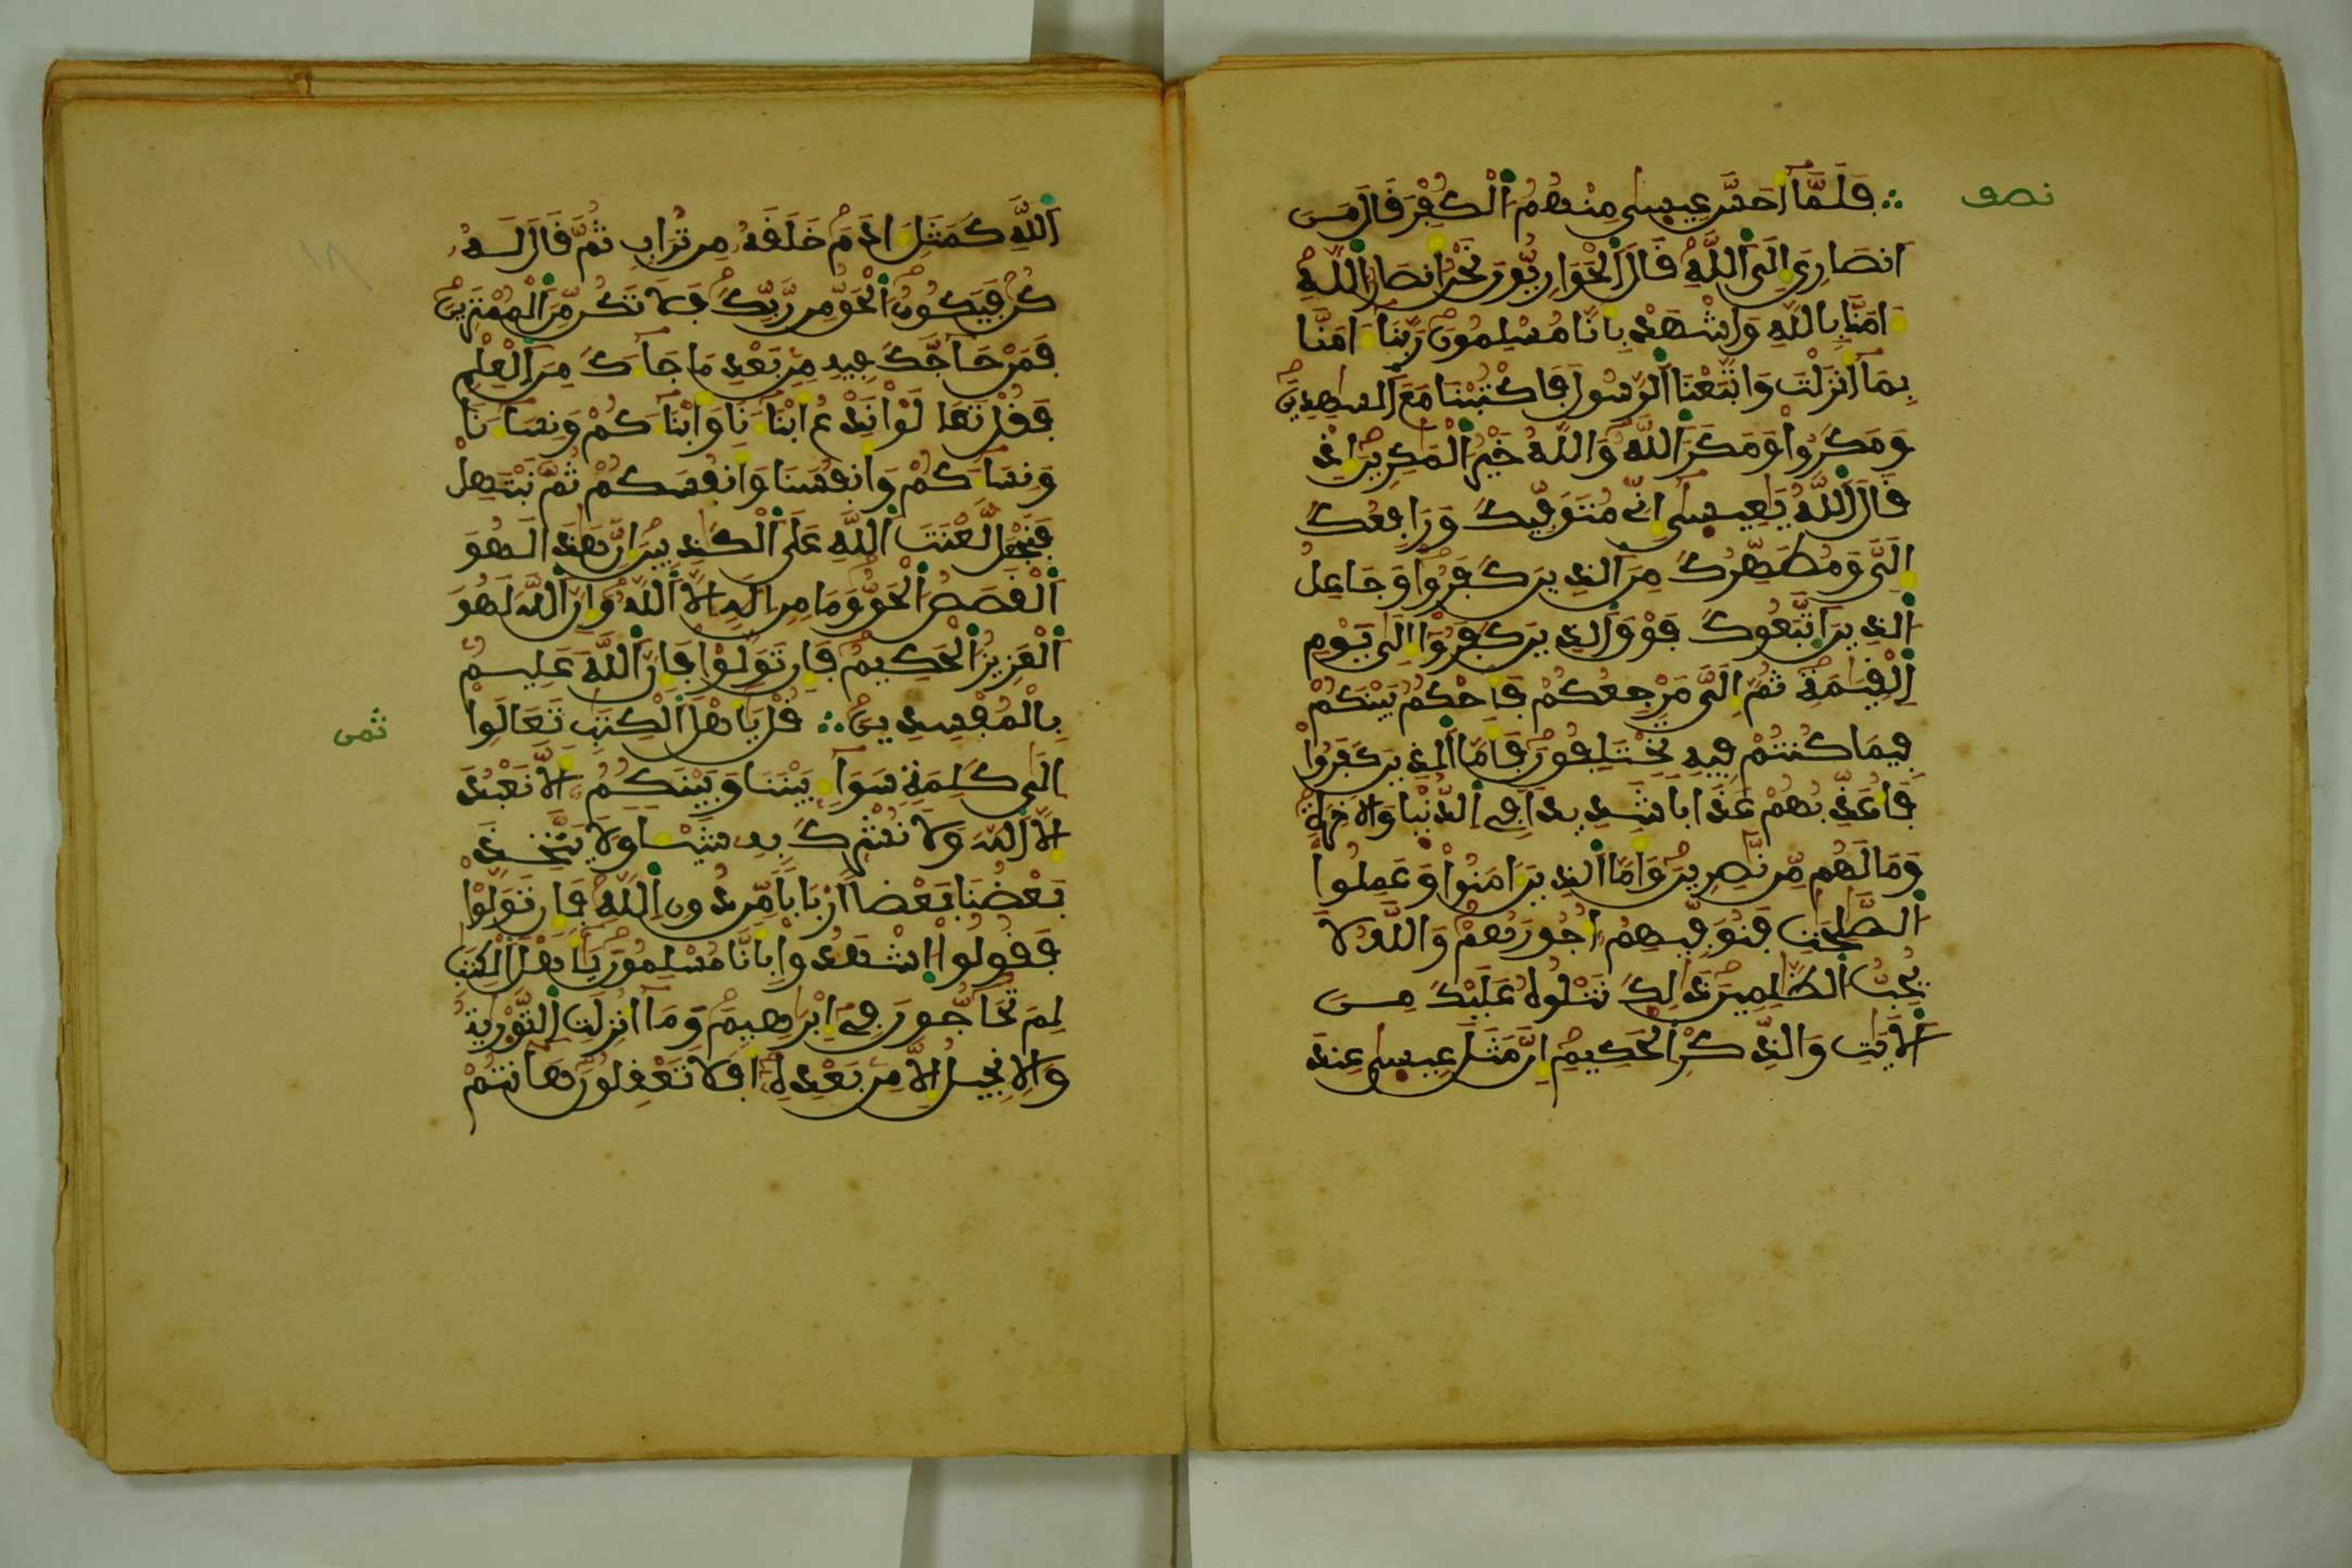 نصف
فَلَمَّا أَحَسَّ عِيسى مِنْهُمُ الْكُفْرَ قَالَ مَنَ
انصَارِيَ إِلَى اَللَّهِ قَالَ اَلْحَوَارِيُّونَ نَحْنُ أَنصَارُ اللَّهِ
ءَامَنَّا بِاللَّهِ وَاشْهَدْ بِأَنَّا مُسْلِمُونَ رَبَّنَا ءَامَنَّا
بِمَا أَنزَلْتَ وَاتَّبَعْنَا اَلرَّسُولَ فَاكْتُبْنَا مَعَ اَلشَّهِدِينَ
وَمَكَرُوا وَمَكَرَ اَللَّهُ وَاللَّهُ خَيْرُ الْمَكِرِينَ إِذْ
قَالَ اَللَّهُ يَعِيسَى إِنِّي مُتَوَفِّيكَ وَرَافِعُكَ
إِلَيَّ وَمُطَهِّرُكَ مِنَ اَلذِينَ كَفَرُوا وَجَاعِلُ
اَلذِينَ اَتَّبَعُوكَ فَوْقَ اَلذِينَ كَفَرُوا إِلَى يَوْمِ
اِلْقِيَمَةِ ثُمَّ إِلَيَّ مَرْجِعُكُمْ فَأَحْكُمُ بَيْنَكُمْ
فِيمَا كُنتُمْ فِيهِ تَخْتَلِفُونَ فَأَمَّا اَلذِينَ كَفَرُوا
فَأُعَذِّبُهُمْ عَذَابا شَدِيدا فِي اِلدُّنْيَا وَالاَخِرَةِ
وَمَا لَهُم مِّن نَّصِرِينَ وَأَمَّا اَلذِينَ ءَامَنُوا وَعَمِلُوا
اُلصَّلِحَتِ فَنُوَفِّيهِمُ أُجُورَهُمْ وَاللَّهُ لَا
يُحِبُّ اُلظَّلِمِينَ ذَلِكَ نَتْلُوهُ عَلَيْكَ مِنَ
اَلاَيَتِ وَالذِّكْرِ اِلْحَكِيمِ إِنَّ مَثَلَ عِيسى عِندَ
اَللَّهِ كَمَثَلِ ءَادَمَ خَلَقَهُ مِن تُرَابٍ ثُمَّ قَالَ لَهُ
كُن فَيَكُونُ اُلْحَقُّ مِن رَّبِّكَ فَلَا تَكُن مِّنَ اَلْمُمْتَرِينَ
فَمَنْ حَاجَّكَ فِيهِ مِن بَعْدِ مَا جَاءَكَ مِنَ اَلْعِلْمِ
فَقُلْ تَعَالَوْا نَدْعُ أَبْنَاءَنَا وَأَبْنَاءَكُمْ وَنِسَاءَنَا
وَنِسَاءَكُمْ وَأَنفُسَنَا وَأَنفُسَكُمْ ثُمَّ نَبْتَهِلْ
فَنَجْعَل لَّعْنَتَ اَللَّهِ عَلَى اَلْكَذِبِينَ إِنَّ هَذَا لَهُوَ
اَلْقَصَصُ اُلْحَقُّ وَمَا مِنِ الَهٍ اِلَّا اَللَّهُ وَإِنَّ اَللَّهَ لَهُوَ
اَلْعَزِيزُ اُلْحَكِيمُ فَإِن تَوَلَّوْا فَإِنَّ اَللَّهَ عَلِيمٌ
بِالْمُفْسِدِينَ قُلْ يَأَهْلَ اَلْكِتَبِ تَعَالَوِا
ثمن
اِلَى كَلِمَةٍ سَوَاءٍ بَيْنَنَا وَبَيْنَكُمُ أَلَّا نَعْبُدَ
إِلَّا اَللَّهَ وَلَا نُشْرِكَ بِهِ شَيْئا وَلَا يَتَّخِذَ
بَعْضُنَا بَعْضا أَرْبَابا مِّن دُونِ اِللَّهِ فَإِن تَوَلَّوْا
فَقُولُوا اُشْهَدُوا بِأَنَّا مُسْلِمُونَ يَأَهْلَ اَلْكِتَبِ
لِمَ تُحَاجُّونَ فِي إِبْرَهِيمَ وَمَا أُنزِلَتِ اِلتَّوْرَيةُ
وَالِانجِيلُ إِلَّا مِن بَعْدِهِ أَفَلَا تَعْقِلُونَ هَأَنتُمْ